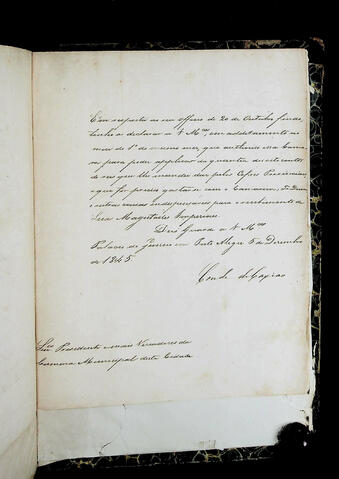 Em resposta ao seu officio de 20 de Outubro findo,
tenho a declarar a V Mces, em additamento ao
meu do 1º do mesmo mez, que authoriso essa Cama-
ra para poder applicar a quantia de
de reis que lhe mandei dar pelos Cofres Provinciaes
e que for preciso gastar-se com o
e outras cousas indispensaveis para o recebimento de
Suas Magestades Imperiaes.
Deos Guarde a V Mces
Palacio do Governo em Porto Alegre 5 de Dezembro
de 1845.
Conde de Caxias
Snres Presidente e mais Vereadores da
Camara Municipal desta Cidade